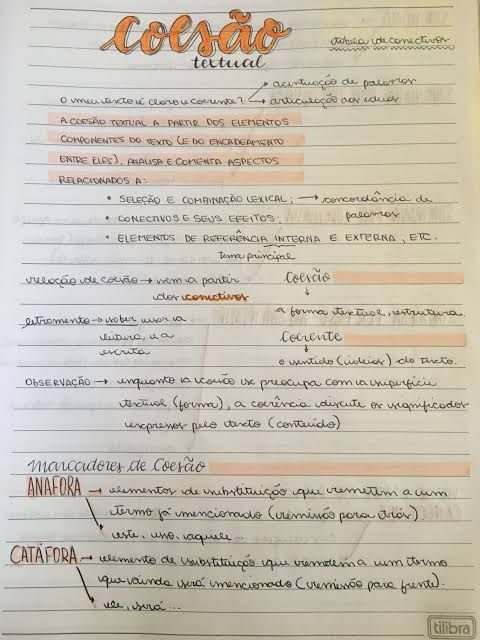 Coesão
textual
tabela de conectivos
acentuação de palavras
O meu texto é claro e coerente? → articulação das ideias
A COESÃO TEXTUAL A PARTIR DOS ELEMENTOS
COMPONENTES DO TEXTO (E DO ENCADEAMENTO
ENTRE ELES), ANALISA E COMENTA ASPECTOS
RELACIONADOS A:
• SELEÇÃO E COMBINAÇÃO LEXICAL; → concordância de
• CONECTIVOS E SEUS EFEITOS; palavras
• ELEMENTOS DE REFERÊNCIA INTERNA E EXTERNA, ETC.
tema principal
relação de coesão → vem a partir
dos conectivos
letramento → saber usar a
leitura, e a
escrita
Coesão
↓
a forma textual, estrutura.
Coerente
↓
o sentido (ideias) do texto.
OBSERVAÇÃO → enquanto a coesão se preocupa com a superfície
textual (forma), a coerência discute os significados
expressos pelo texto (conteúdo)
Marcadores de Coesão
ANAFORA → elementos de substituição que remetem a um
termo já mencionado (remissão para trás)
este, isso, aquele...
CATÁFORA → elemento de substituição que remetem a um termo
que ainda será mencionado (remissão para frente).
ele, será...
tilibra